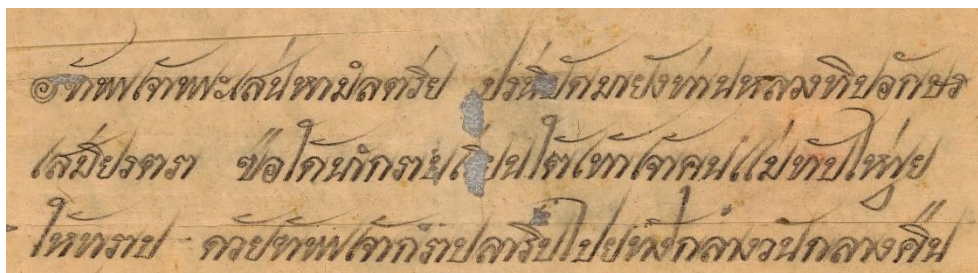 ๏ข้าพเจ้าพะเสน่หามลตรีย ปรนิบัดมายังท่านหลวงทิปอักษร
เสมียรตรา ฃอได้นำกราบเรียนใต้เท้าเจ้าคุนแม่ทับไหญ่
ให้ทราบ ด้วยข้าพเจ้ากราบลารีบไปยทังกลางวันกลางคืน